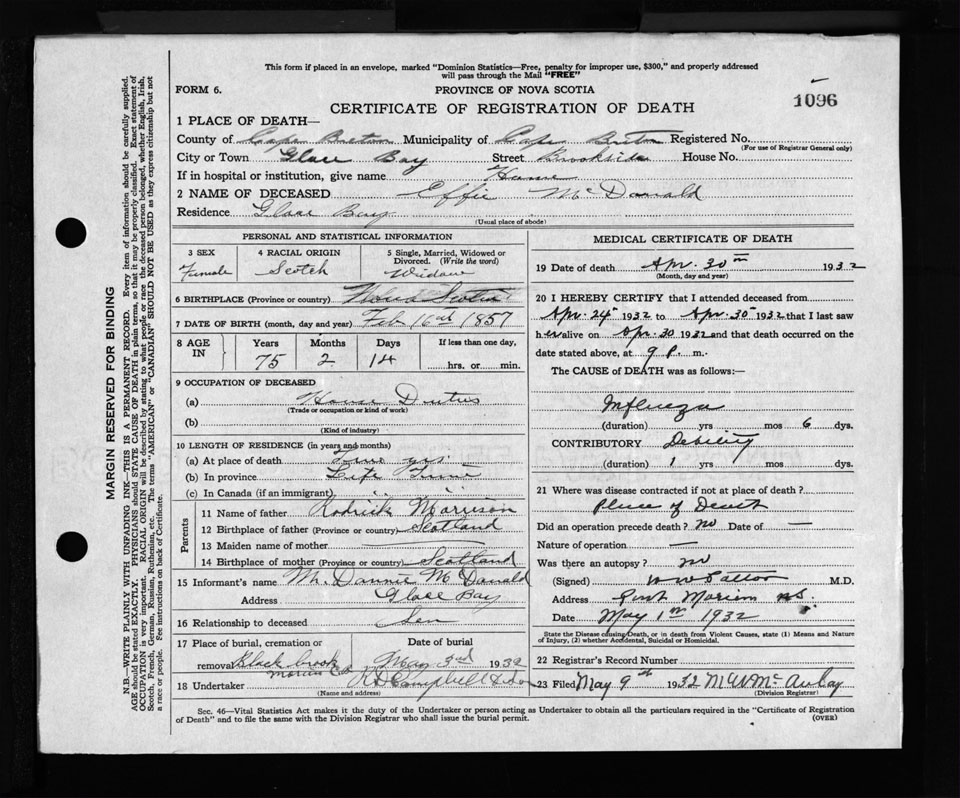 This form if placed in an envelope, marked "Dominion Statistics—Free, penalty for improper use, $300," and properly addressed
will pass through the Mail "FREE"
FORM 6.
PROVINCE OF NOVA SCOTIA
1096
CERTIFICATE OF REGISTRATION OF DEATH
1 PLACE OF DEATH—
County of Cape Breton Municipality of Cape Breton Registered No.
(For use of Registrar General only)
City or Town Glace Bay Street Brookside House No.
If in hospital or institution, give name Home
2 NAME OF DECEASED Effie McDonald
Residence Glace Bay
(Usual place of abode)
PERSONAL AND STATISTICAL INFORMATION
3 SEX
Female
4 RACIAL ORIGIN
Scotch
5 Single, Married, Widowed or
Divorced. (Write the word)
Widow
6 BIRTHPLACE (Province or country) Nova Scotia
7 DATE OF BIRTH (month, day and year) Feb 16th 1857
8 AGE IN
Years Months Days If less than one day,
75 2 14 hrs. or min.
9 OCCUPATION OF DECEASED
(a) House Duties
(Trade or occupation or kind of work)
(b)
(Kind of industry)
10 LENGTH OF RESIDENCE (in years and months)
(a) At place of death yrs.
(b) In province Life Time
(c) In Canada (if an immigrant)
Parents
11 Name of father Rodrick Morrison
12 Birthplace of father (Province or country) Scotland
13 Maiden name of mother
14 Birthplace of mother (Province or country) Scotland
15 Informant's name Mr. Dannie McDonald
Address Glace Bay
16 Relationship to deceased Son
17 Place of burial, cremation or
removal Black brook
Date of burial
May 3rd 1932
18 Undertaker Campbell
(Name and address)
MEDICAL CERTIFICATE OF DEATH
19 Date of death Apr. 30th 1932
(Month, day and year)
20 I HEREBY CERTIFY that I attended deceased from
Apr. 24th 1932 to Apr. 30th 1932 that I last saw
her alive on Apr. 30 1932 and that death occurred on the
date stated above, at 9 P. m.
The CAUSE of DEATH was as follows:—
Influenza
(duration) yrs mos 6 dys.
CONTRIBUTORY Debility
(duration) 1 yrs mos dys.
21 Where was disease contracted if not at place of death?
Place of Death
Did an operation precede death? no Date of —
Nature of operation —
Was there an autopsy? no
(Signed) M.D.
Address Port Morien N.S.
Date May 1st 1932
State the Disease causing Death, or in death from Violent Causes, state (1) Means and Nature
of Injury, (2) whether Accidental, Suicidal or Homicidal.
22 Registrar's Record Number
23 Filed May 9th 1932
(Division Registrar)
Sec. 46—Vital Statistics Act makes it the duty of the Undertaker or person acting as Undertaker to obtain all the particulars required in the "Certificate of Registration
of Death" and to file the same with the Division Registrar who shall issue the burial permit.
(OVER)
MARGIN RESERVED FOR BINDING
N.B.—WRITE PLAINLY WITH UNFADING INK—THIS IS A PERMANENT RECORD. Every item of information should be carefully supplied.
AGE should be stated EXACTLY. PHYSICIANS should STATE CAUSE OF DEATH in plain terms, so that it may be properly classified. Exact statement of
OCCUPATION is very important. RACIAL ORIGIN will be described by stating to what people or race the deceased person belonged, whether English, Irish,
Scotch, French, German, Russian, Ruthenian, etc. The terms "AMERICAN" or "CANADIAN" SHOULD NOT BE USED as they express citizenship but not
a race or people. See instructions on back of Certificate.